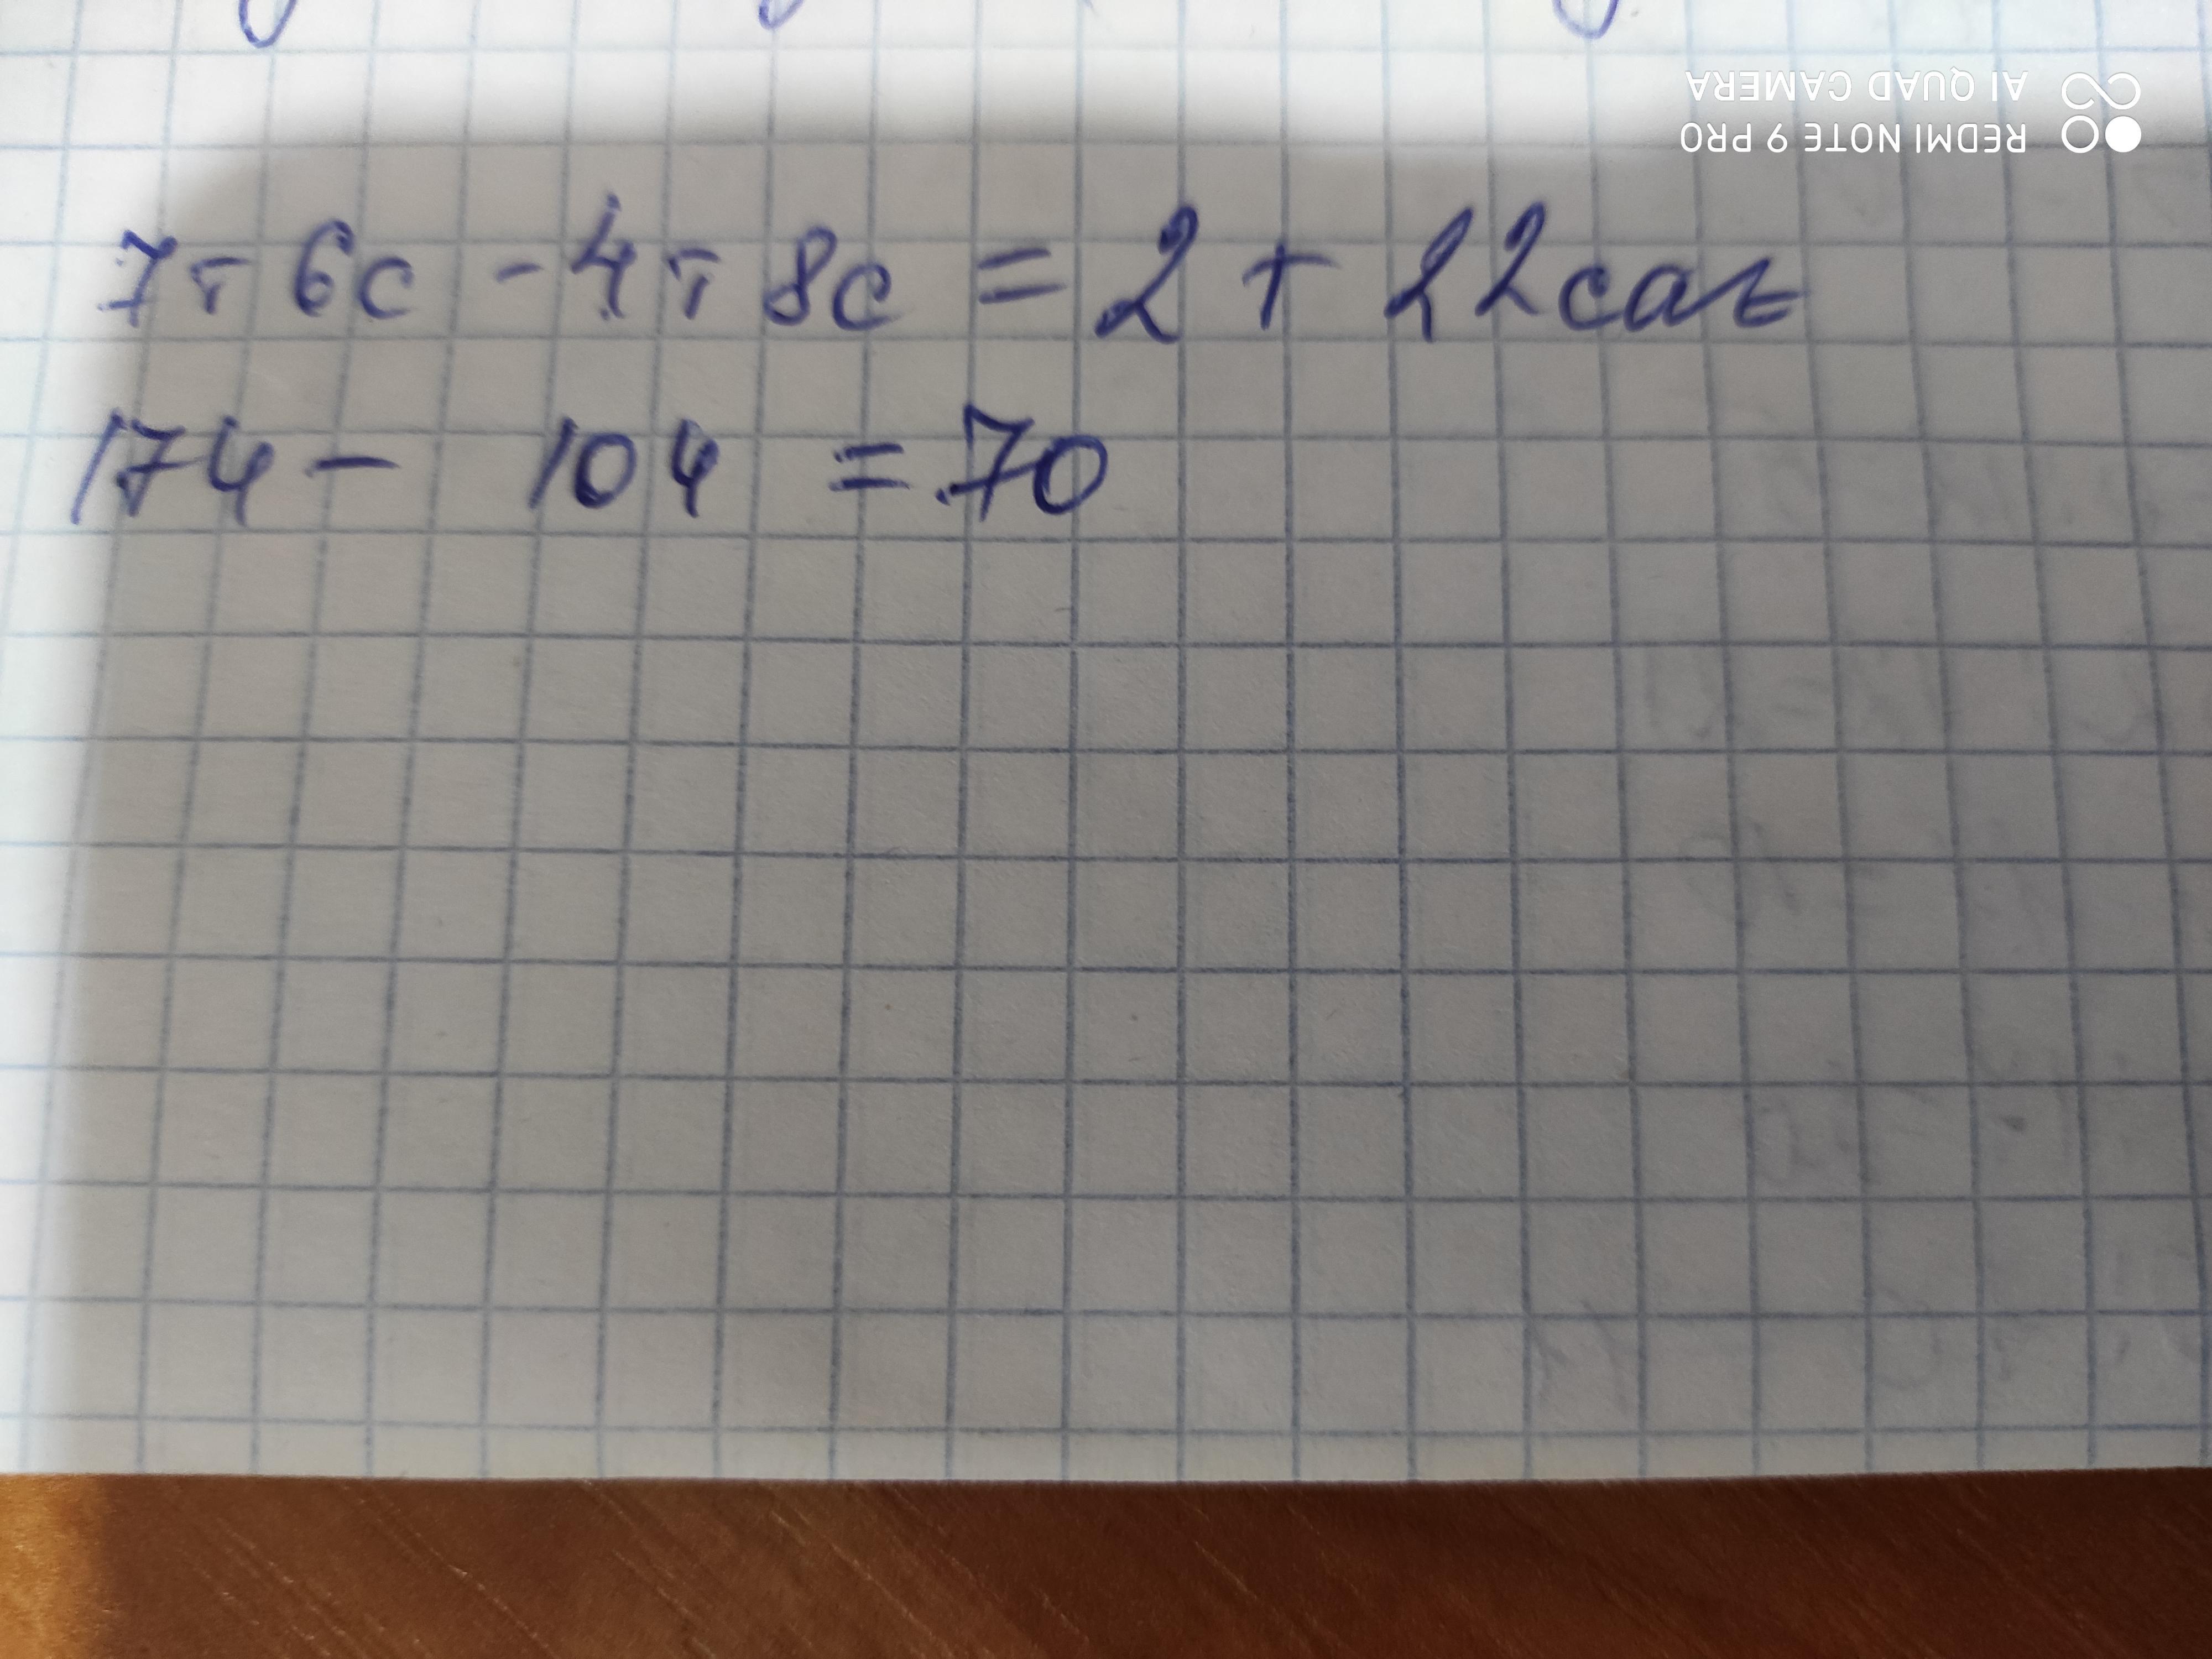 REDMI NOTE 9 PRO
AI QUAD CAMERA
7т 6с - 4т 8с = 2т 22саг
174 - 104 = 70